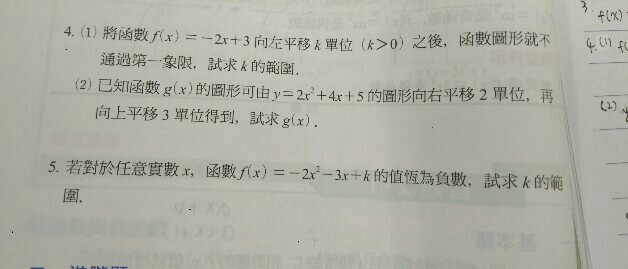 4. (1) 將函數 f(x)=-2x+3 向左平移 k 單位 (k>0) 之後，函數圖形就不
通過第一象限，試求 k 的範圍.
(2) 已知函數 g(x) 的圖形可由 y=2x²+4x+5 的圖形向右平移 2 單位，再
向上平移 3 單位得到，試求 g(x).
5. 若對於任意實數 x，函數 f(x)=-2x²-3x+k 的值恆為負數，試求 k 的範
圍.
3.
f(x)
4. (1) f(
(2)